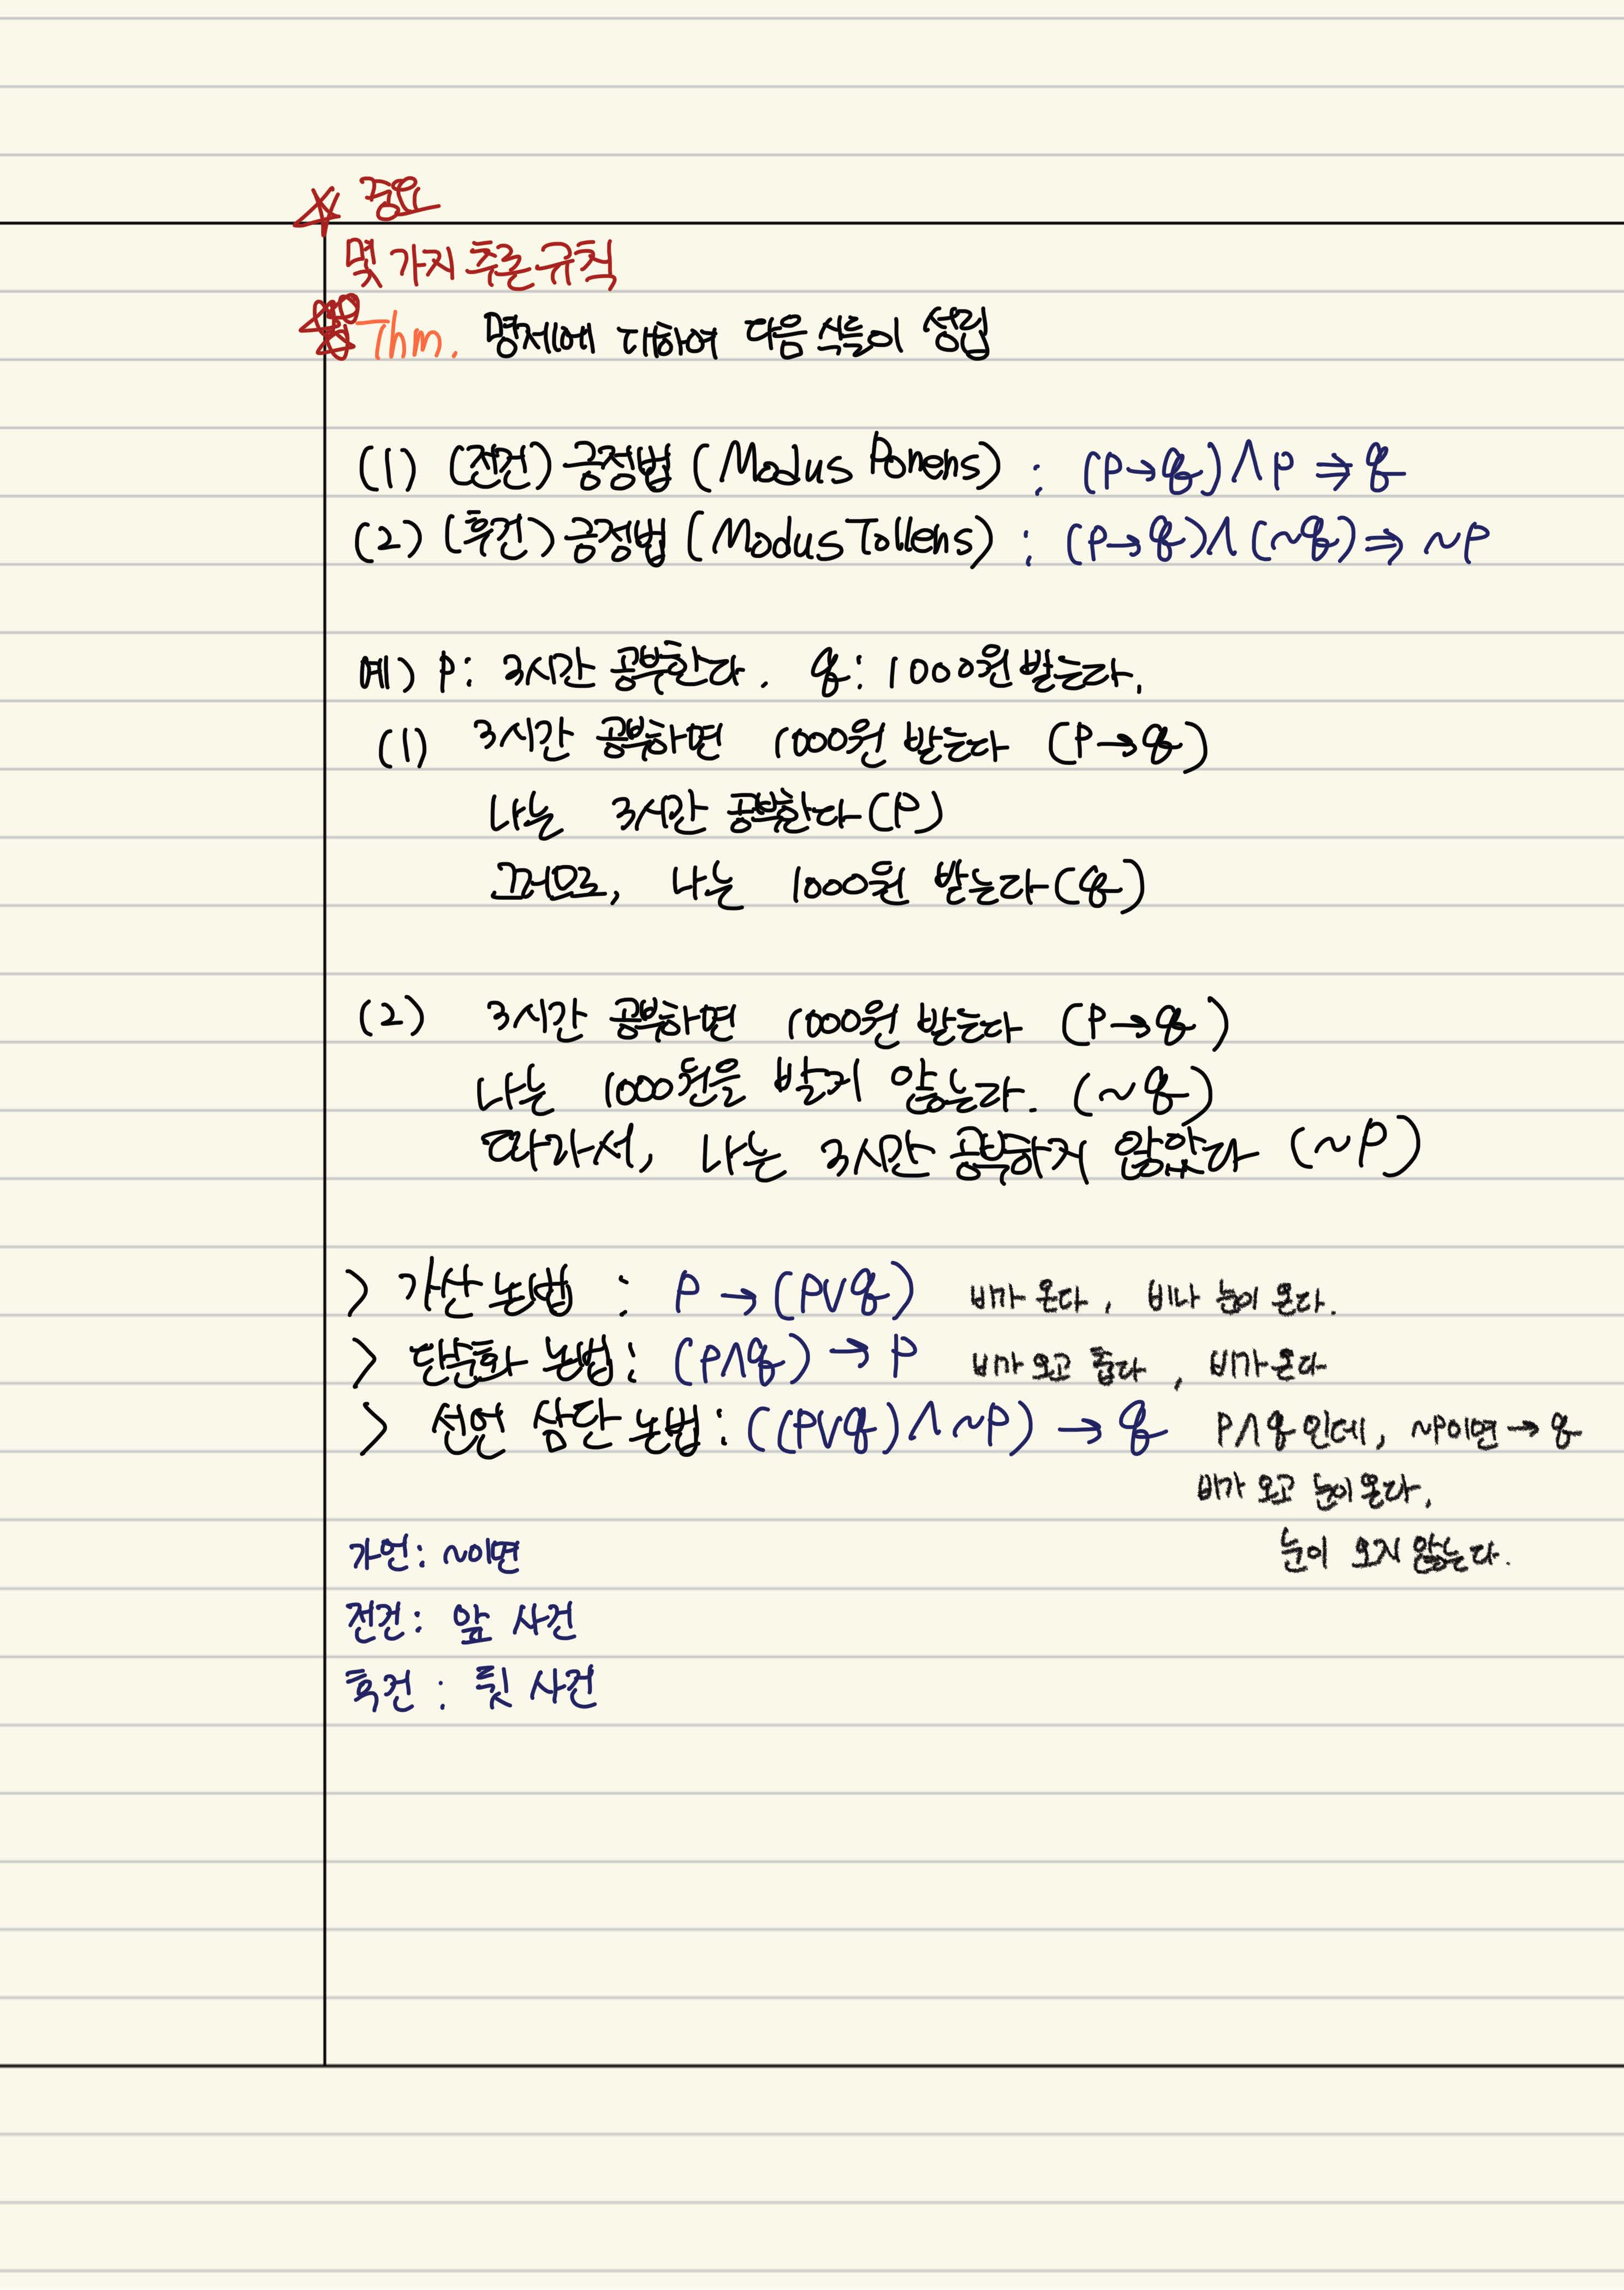 ☆ 중요
몇 가지 추론 규칙
Thm. 명제에 대하여 다음 식들이 성립
(1) (전건) 긍정법 (Modus Ponens) : (p→q)∧p ⇒ q
(2) (후건) 긍정법 (Modus Tollens) : (p→q)∧(~q) ⇒ ~p
예) p: 3시간 공부한다. q: 1000원 받는다.
(1) 3시간 공부하면 1000원 받는다 (p→q)
나는 3시간 공부한다 (p)
그러므로, 나는 1000원 받는다 (q)
(2) 3시간 공부하면 1000원 받는다 (p→q)
나는 1000원을 받지 않는다. (~q)
따라서, 나는 3시간 공부하지 않았다 (~p)
> 가산 논법 : p → (p∨q) 비가 온다, 비나 눈이 온다.
> 단순화 논법: (p∧q) → p 비가 오고 춥다, 비가 온다
> 선언 삼단 논법: ((p∨q)∧~p) → q p∧q 인데, ~p이면 → q
비가 오고 눈이 온다,
눈이 오지 않는다.
가언: ~이면
전건: 앞 사건
후건 : 뒷 사건